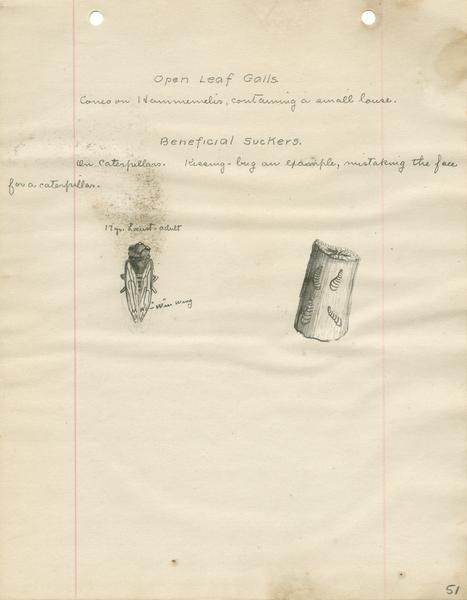 Open Leaf Galls
Cones on Hammemelis, containing a small louse.
Beneficial Suckers.
On Caterpillars. Kissing-bug an example, mistaking the face
for a caterpillar.
17 yr. Locust - adult
Wing
51